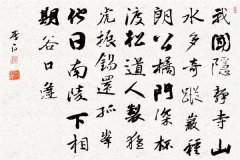 我聞隱靜寺山
水多奇蹤巖種
朗公橘門深杯
渡松道人製猛
虎振錫還孤峯
他日南陵下相
期谷口逢